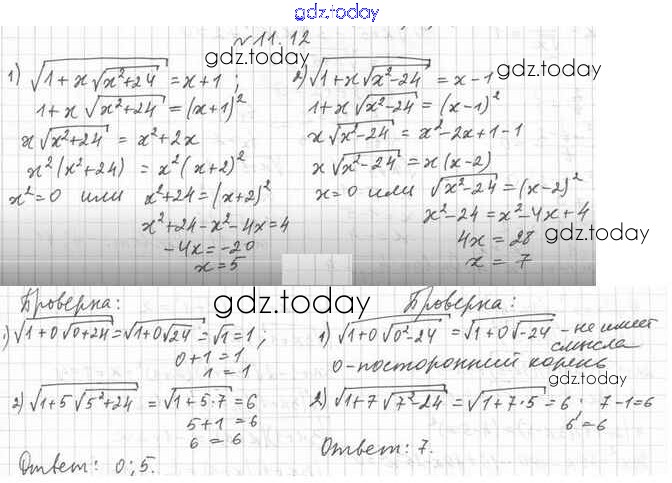 gdz.today
№11.12
gdz.today
1) √(1+x√(x²+24)) = x+1 ;
1+x√(x²+24) = (x+1)²
x√(x²+24) = x²+2x
x²(x²+24) = x²(x+2)²
x²=0 или x²+24=(x+2)²
x²+24-x²-4x=4
-4x=-20
x=5
2) √(1+x√(x²-24)) = x-1
gdz.today
1+x√(x²-24) = (x-1)²
x√(x²-24) = x²-2x+1-1
x√(x²-24) = x(x-2)
x=0 или √(x²-24) = (x-2)²
x²-24 = x²-4x+4
4x = 28
gdz.today
x = 7
Проверка:
gdz.today
1) √(1+0√(0+24)) = √(1+0√24) = √1 = 1 ;
0+1=1
1=1
2) √(1+5√(5²+24)) = √(1+5·7) = 6
5+1=6
6=6
Ответ: 0; 5.
Проверка:
1) √(1+0√(0²-24)) = √(1+0√-24) - не имеет
смысла
0-посторонний корень
gdz.today
2) √(1+7√(7²-24)) = √(1+7·5) = 6 ; 7-1=6
6=6
Ответ: 7.